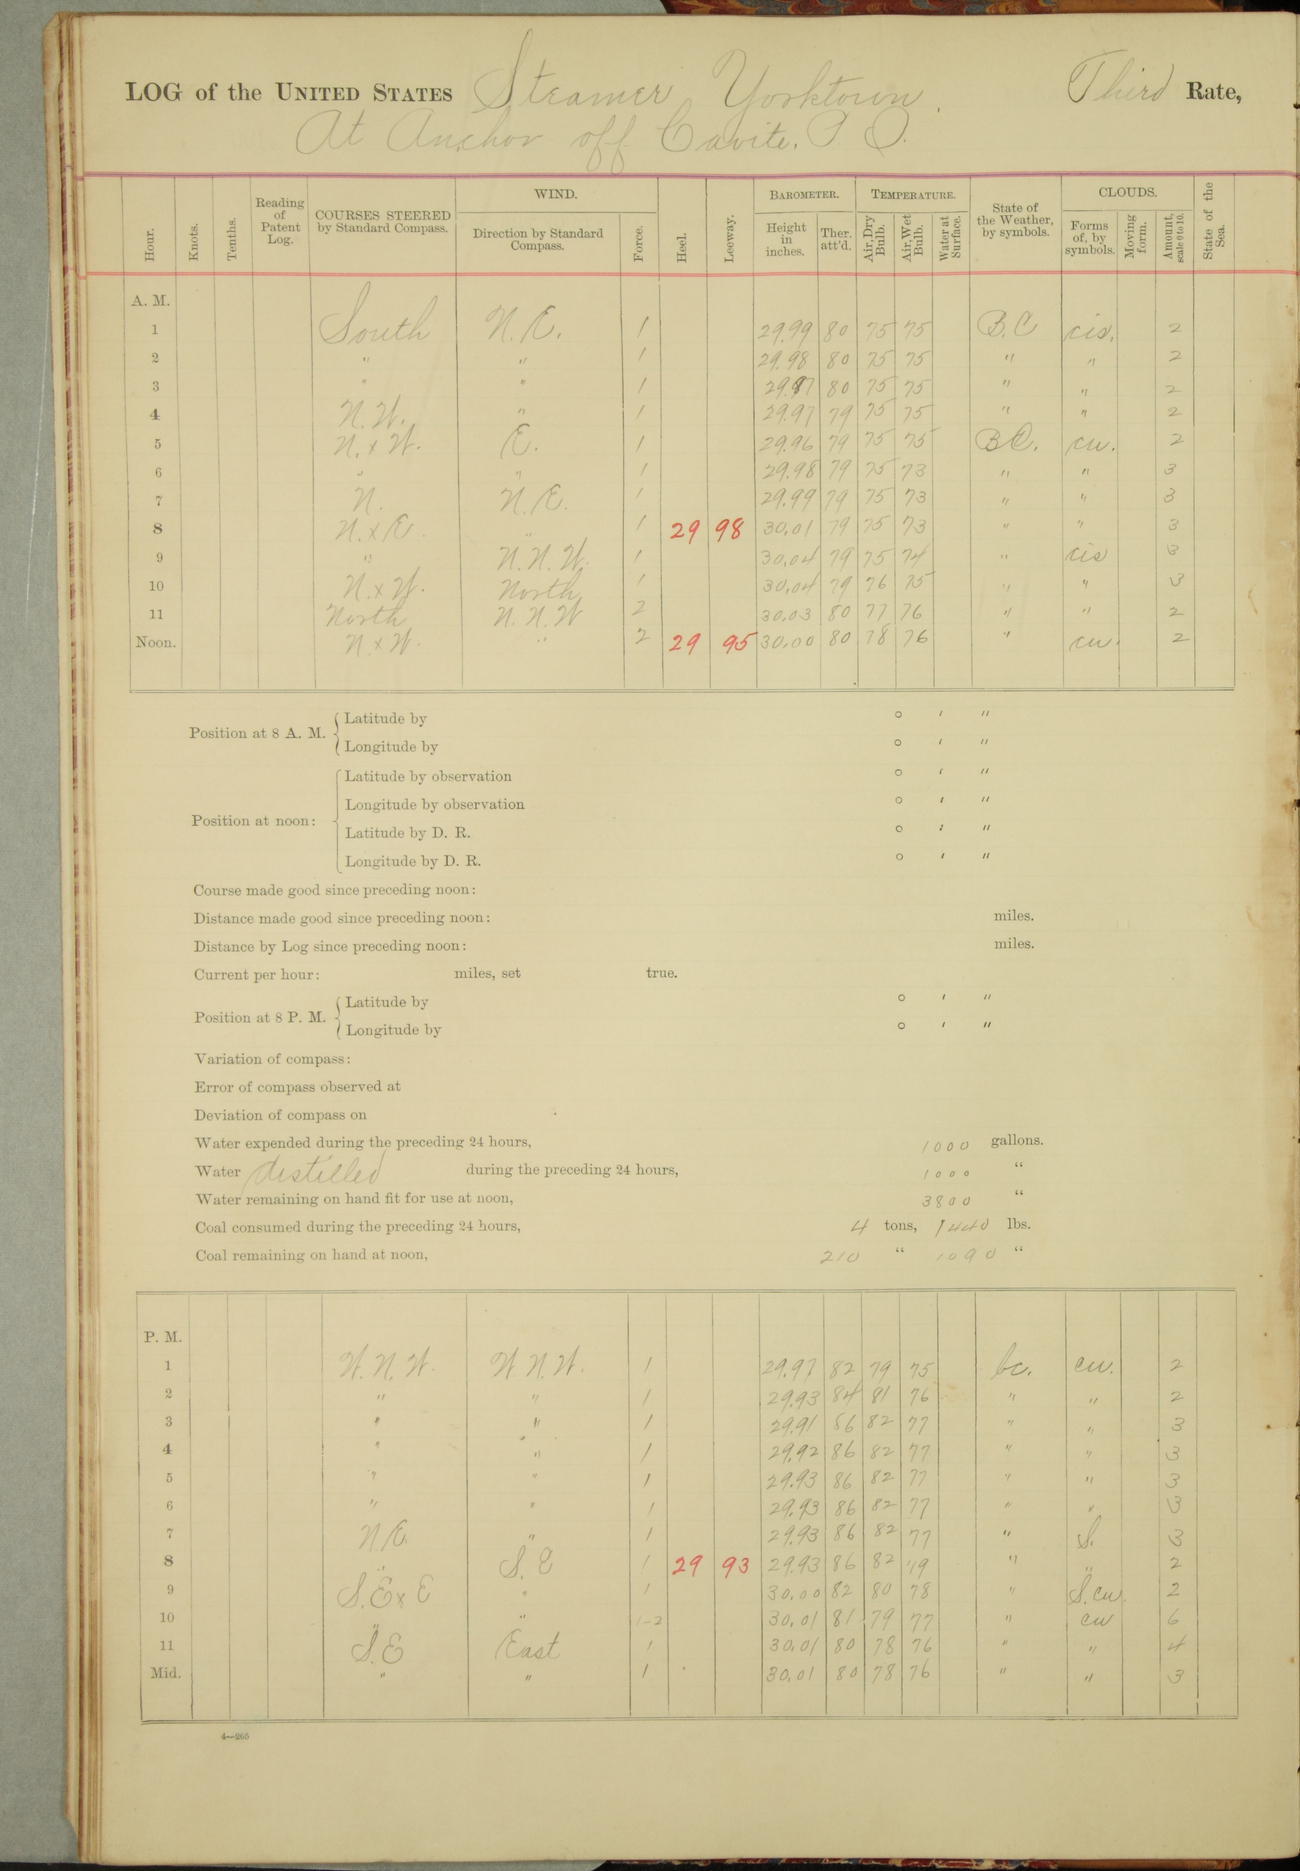 LOG of the UNITED STATES Steamer Yorktown, Third Rate,
At Anchor off Cavite. P. I.
Hour. Knots. Tenths. Reading of Patent Log. COURSES STEERED by Standard Compass. WIND. Direction by Standard Compass. Force. Heel. Leeway. BAROMETER. Height in inches. Ther. att'd. TEMPERATURE. Air, Dry Bulb. Air, Wet Bulb. Water at Surface. State of the Weather, by symbols. CLOUDS. Forms of, by symbols. Moving form. Amount, scale 0 to 10. State of the Sea.
A. M.
1 South N.E. 1 29.99 80 75 75 B.C cis. 2
2 " " 1 29.98 80 75 75 " " 2
3 " " 1 29.97 80 75 75 " " 2
4 N.W. " 1 29.97 79 75 75 " " 2
5 N.xW. E. 1 29.96 79 75 75 BC. cu. 2
6 " " 1 29.98 79 75 73 " " 3
7 N. N.E. 1 29.99 79 75 73 " " 3
8 N.xE. " 1 29 98 30.01 79 75 73 " " 3
9 " N.N.W. 1 30.04 79 75 74 " cis 3
10 N.xW. North 1 30.04 79 76 75 " " 3
11 North N.N.W 2 30.03 80 77 76 " " 2
Noon. N.xW. " 2 29 95 30.00 80 78 76 " cu. 2
Position at 8 A. M. { Latitude by ° ′ ″
Longitude by ° ′ ″
Position at noon: { Latitude by observation ° ′ ″
Longitude by observation ° ′ ″
Latitude by D. R. ° ′ ″
Longitude by D. R. ° ′ ″
Course made good since preceding noon:
Distance made good since preceding noon: miles.
Distance by Log since preceding noon: miles.
Current per hour: miles, set true.
Position at 8 P. M. { Latitude by ° ′ ″
Longitude by ° ′ ″
Variation of compass:
Error of compass observed at
Deviation of compass on
Water expended during the preceding 24 hours, 1000 gallons.
Water distilled during the preceding 24 hours, 1000 "
Water remaining on hand fit for use at noon, 3800 "
Coal consumed during the preceding 24 hours, 4 tons, 1440 lbs.
Coal remaining on hand at noon, 210 " 1090 "
P. M.
1 W.N.W. W.N.W. 1 29.97 82 79 75 bc. cu. 2
2 " " 1 29.93 84 81 76 " " 2
3 " " 1 29.91 86 82 77 " " 3
4 " " 1 29.92 86 82 77 " " 3
5 " " 1 29.93 86 82 77 " " 3
6 " " 1 29.93 86 82 77 " " 3
7 N.E. " 1 29.93 86 82 77 " S. 3
8 " S.E 1 29 93 29.93 86 82 79 " " 2
9 S.ExE " 1 30.00 82 80 78 " S.cu. 2
10 " " 1-2 30.01 81 79 77 " cu 6
11 S.E East 1 30.01 80 78 76 " " 4
Mid. " " 1 30.01 80 78 76 " " 3
4—265